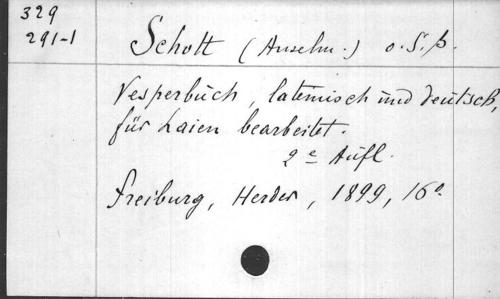 329
291-1
Schott (Anselm.) o.S.b.
Vesperbuch, lateinisch und deutsch,
für Laien bearbeitet.
2e Aufl.
Freiburg, Herder, 1899, 16o.